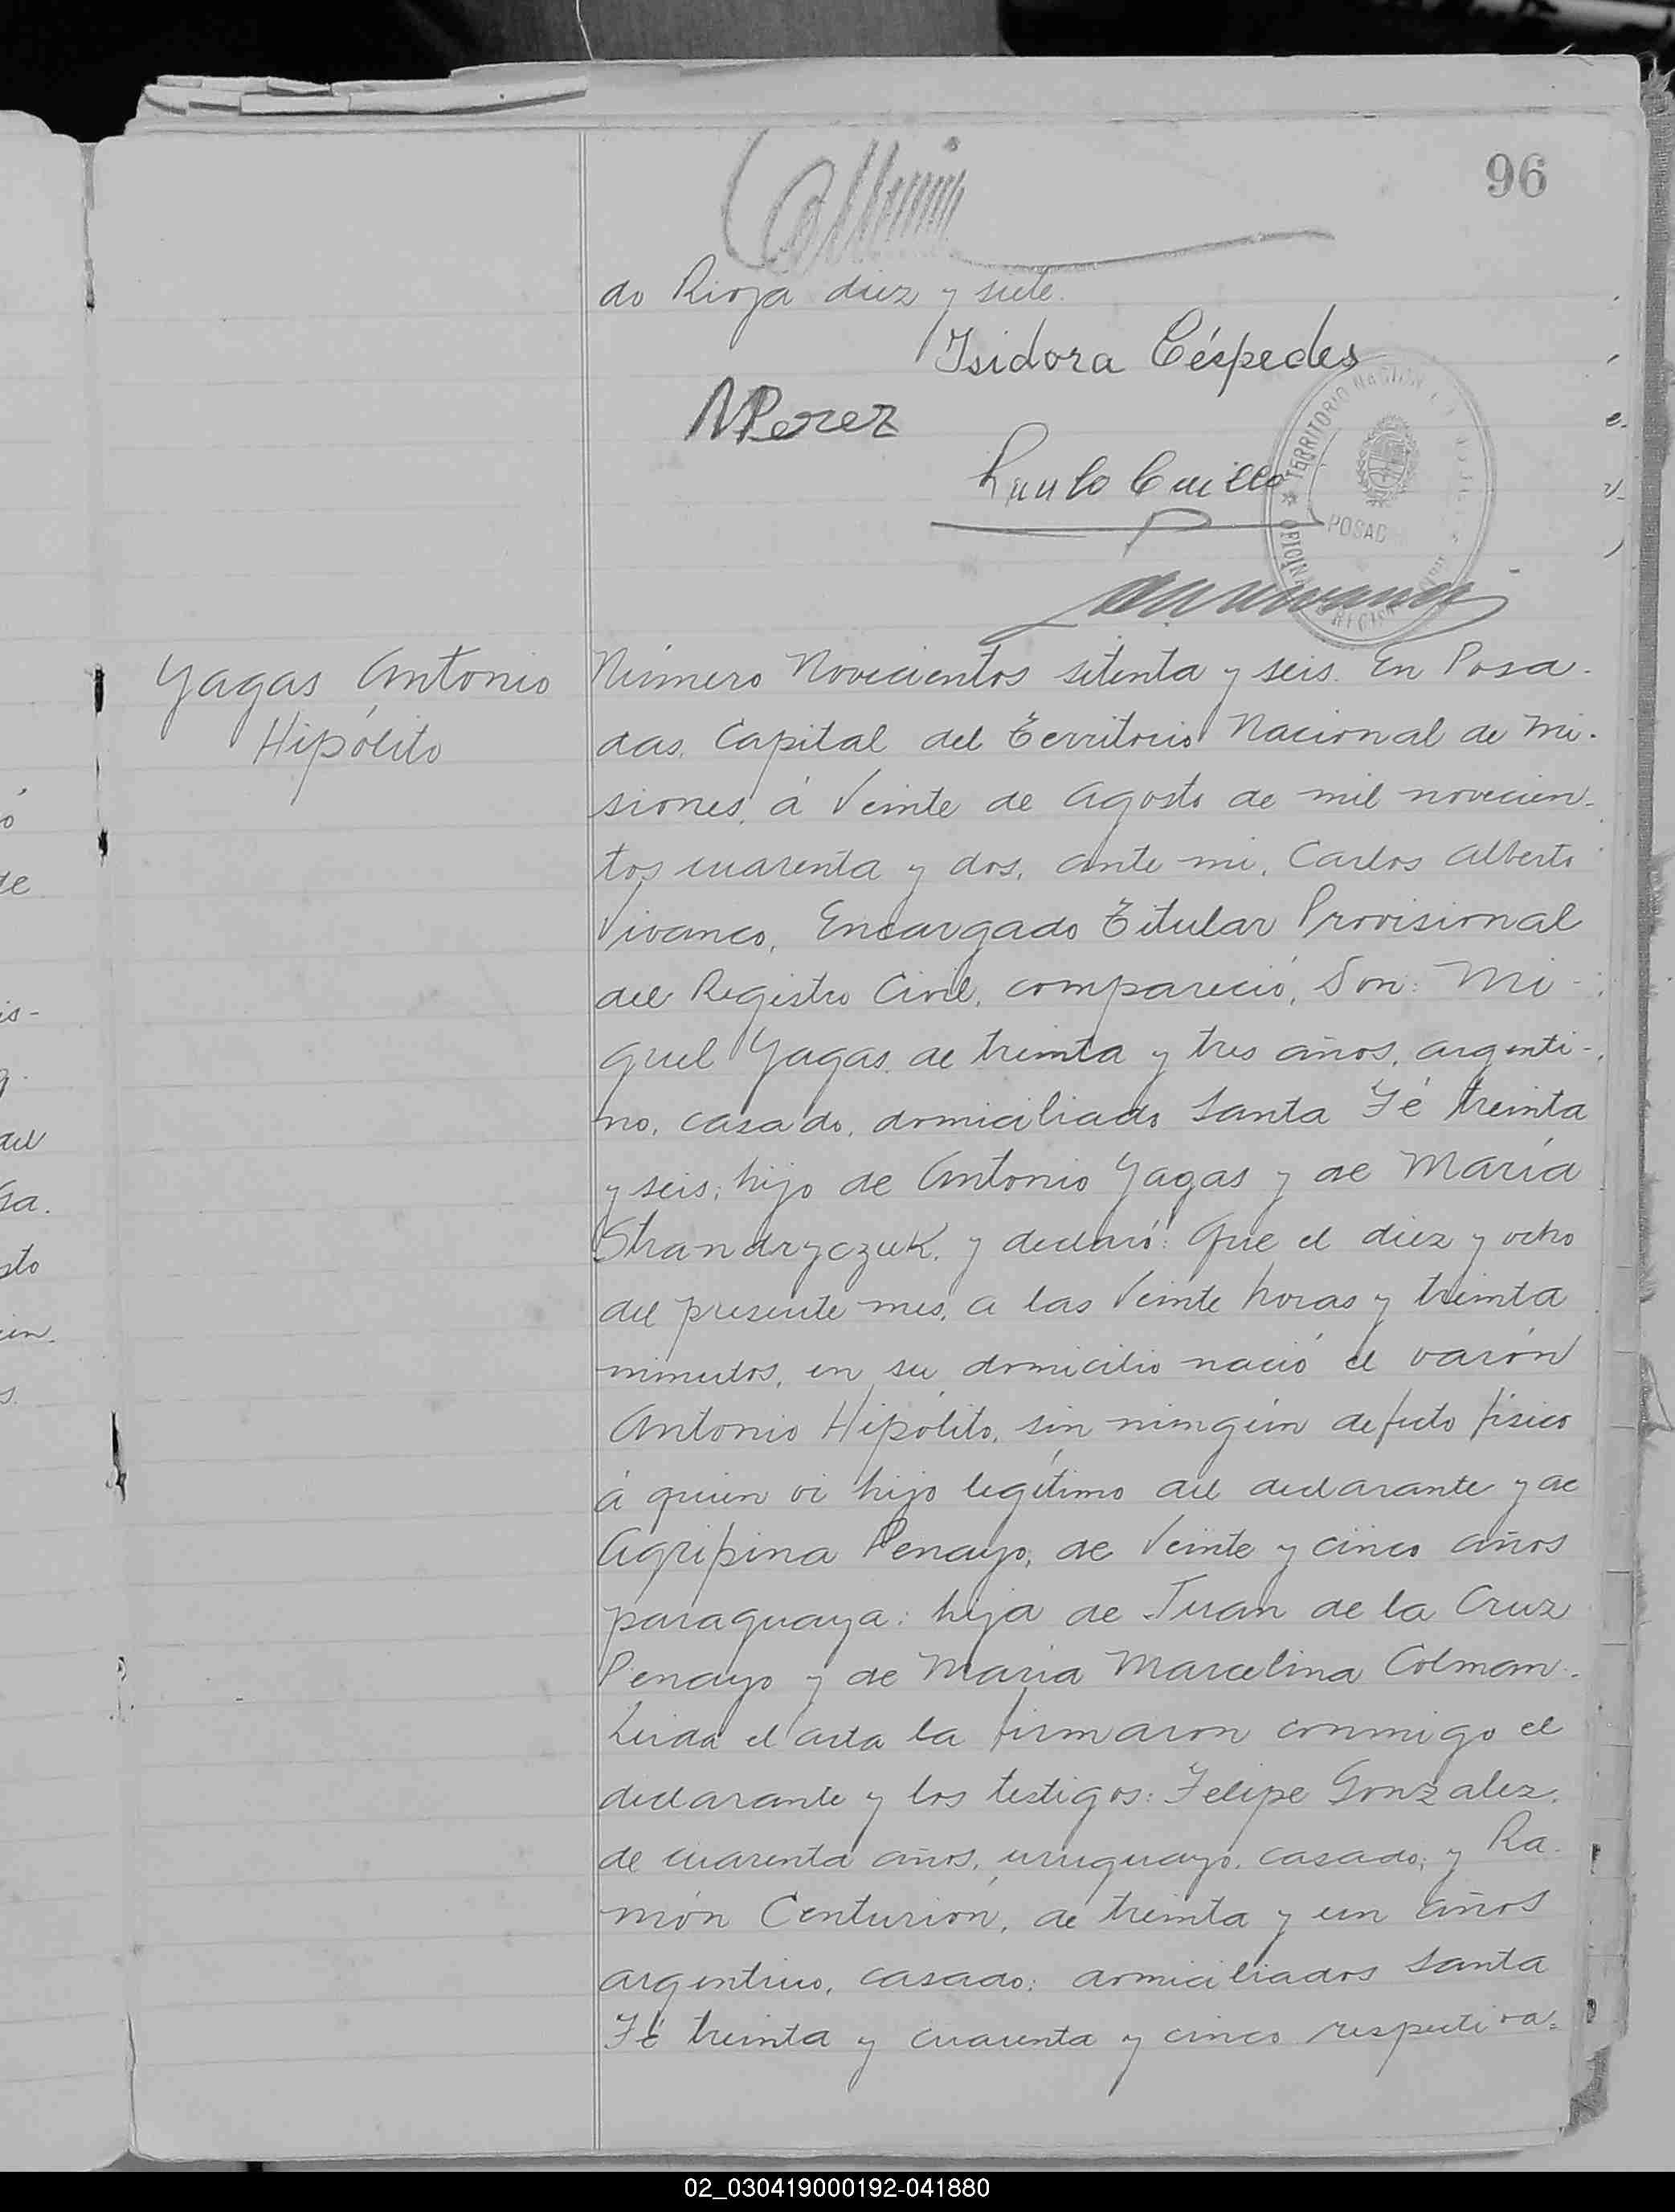 96
do Rioja diez y siete.
Isidora Céspedes
NPerez
TERRITORIO NACION
POSAD
OFICINA
Yagas Antonio
Hipólito
Número Novecientos setenta y seis. En Posa-
das, Capital del Territorio Nacional de Mi-
siones, á veinte de Agosto de mil novecien-
tos cuarenta y dos, ante mi, Carlos Alberto
Vivanco, Encargado Titular Provisional
del Registro Civil, compareció, Don: Mi-
guel Yagas, de treinta y tres años, argenti-
no, casado, domiciliado Santa Fé treinta
y seis; hijo de Antonio Yagas y de María
Strandryczuk, y declaró: Que el diez y ocho
del presente mes, a las veinte horas y treinta
minutos, en su domicilio nació el varón
Antonio Hipólito, sin ningún defecto físico
á quien vi hijo legítimo del declarante y de
Agripina Penayo, de veinte y cinco años
paraguaya: hija de Juan de la Cruz
Penayo y de Maria Marcelina Colman.
Leida el acta la firmaron conmigo el
declarante y los testigos: Felipe Gonzalez,
de cuarenta años, uruguayo, casado; y Ra-
món Centurión, de treinta y un años
argentino, casado; domiciliados Santa
Fé treinta y cuarenta y cinco respectiva=
02_030419000192-041880